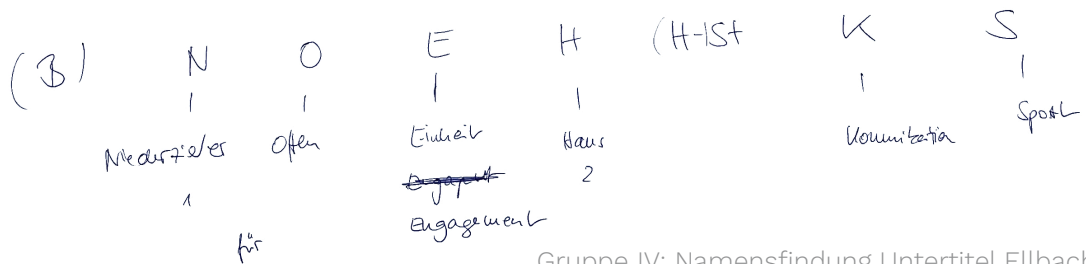 (B) N O E H (H-ISt K S
Niederzierer Offen Einheit Haus Kommunikation Sport
1 2
Engagement
für
Gruppe IV: Namensfindung Untertitel Ellbach